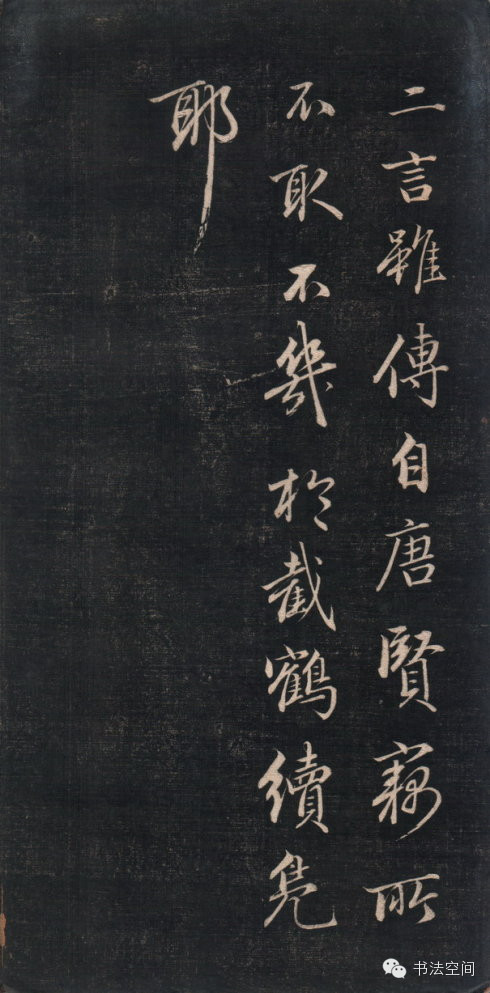 二言雖傳自唐賢竊所
不取不幾於截鶴續鳧
耶
书法空间